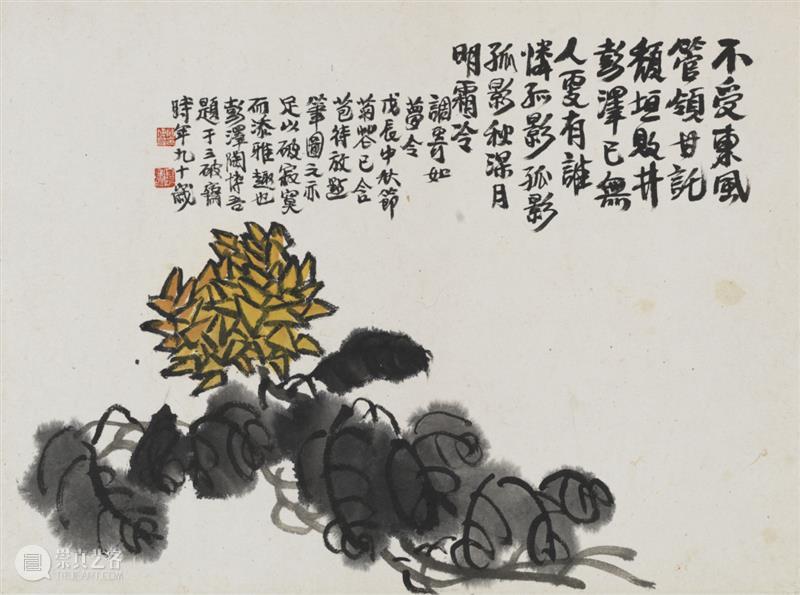 不受東風
管領甘託
頹垣敗井
彭澤已無
人更有誰
憐孤影孤影
孤影秋深月
明霜冷
調寄如
夢令
戊辰中秋節
菊蕾已含
苞待放點
筆圖之亦
足以破寂寞
而添雅趣也
彭澤陶博吾
題于三破齋
時年九十歲
崇真艺客
WWW.TRUEART.COM